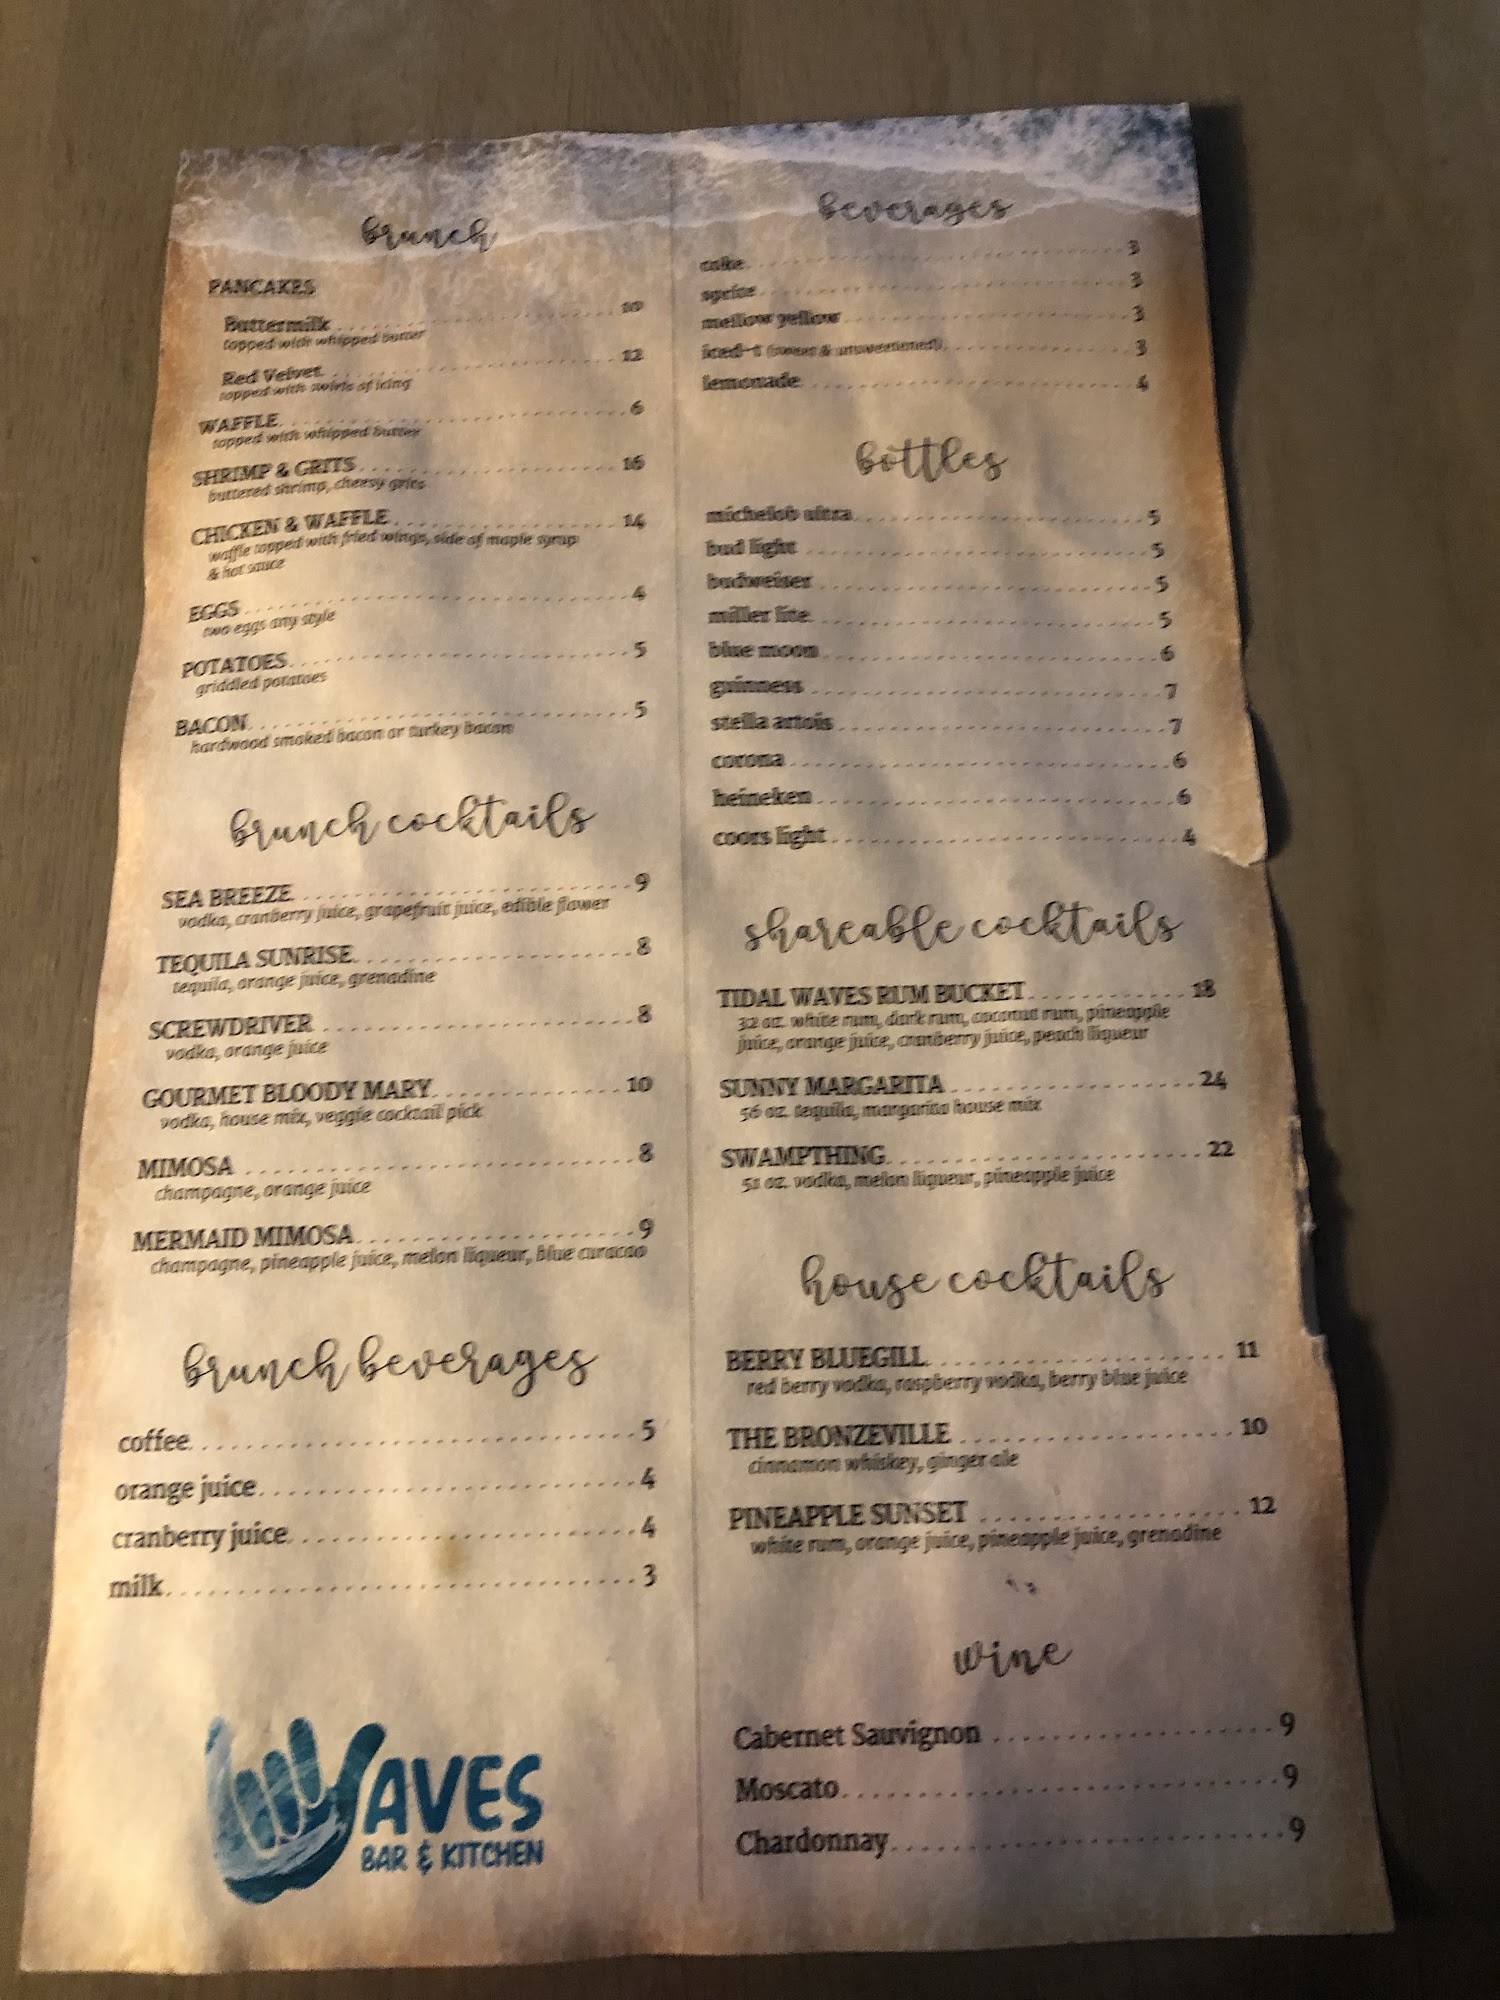 brunch
PANCAKES
Buttermilk 10
topped with whipped butter
Red Velvet 12
topped with swirls of icing
WAFFLE 6
topped with whipped butter
SHRIMP & GRITS 16
buttered shrimp, cheesy grits
CHICKEN & WAFFLE 14
waffle topped with fried wings, side of maple syrup
& hot sauce
EGGS 4
two eggs any style
POTATOES 5
griddled potatoes
BACON 5
hardwood smoked bacon or turkey bacon
brunch cocktails
SEA BREEZE 9
vodka, cranberry juice, grapefruit juice, edible flower
TEQUILA SUNRISE 8
tequila, orange juice, grenadine
SCREWDRIVER 8
vodka, orange juice
GOURMET BLOODY MARY 10
vodka, house mix, veggie cocktail pick
MIMOSA 8
champagne, orange juice
MERMAID MIMOSA 9
champagne, pineapple juice, melon liqueur, blue curacao
brunch beverages
coffee 5
orange juice 4
cranberry juice 4
milk 3
WAVES
BAR & KITCHEN
beverages
coke 3
sprite 3
mellow yellow 3
iced-t (sweet & unsweetened) 3
lemonade 4
bottles
michelob ultra 5
bud light 5
budweiser 5
miller lite 5
blue moon 6
guinness 7
stella artois 7
corona 6
heineken 6
coors light 4
shareable cocktails
TIDAL WAVES RUM BUCKET 18
32 oz. white rum, dark rum, coconut rum, pineapple
juice, orange juice, cranberry juice, peach liqueur
SUNNY MARGARITA 24
56 oz. tequila, margarita house mix
SWAMPTHING 22
51 oz. vodka, melon liqueur, pineapple juice
house cocktails
BERRY BLUEGILL 11
red berry vodka, raspberry vodka, berry blue juice
THE BRONZEVILLE 10
cinnamon whiskey, ginger ale
PINEAPPLE SUNSET 12
white rum, orange juice, pineapple juice, grenadine
wine
Cabernet Sauvignon 9
Moscato 9
Chardonnay 9